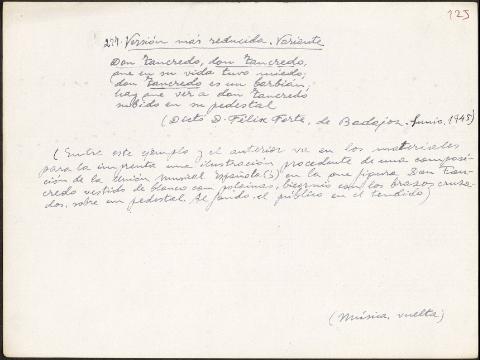 125
274. Versión más reducida. Variante
Don Tancredo, don Tancredo,
que en su vida tuvo miedo;
don Tancredo es un barbián,
hay que ver a don Tancredo
subido en su pedestal
(Dictó D. Félix Forte, de Badajoz. Junio, 1945)
(Entre este ejemplo y el anterior va en los materiales
para la imprenta una ilustración procedente de una composi-
ción de la Unión Musical Española(s) en la que figura Don Tan-
credo vestido de blanco con polainas, bigemio con los brazos cruza-
dos, sobre un pedestal. Al fondo, el público en el tendido)
(Música, vuelta)